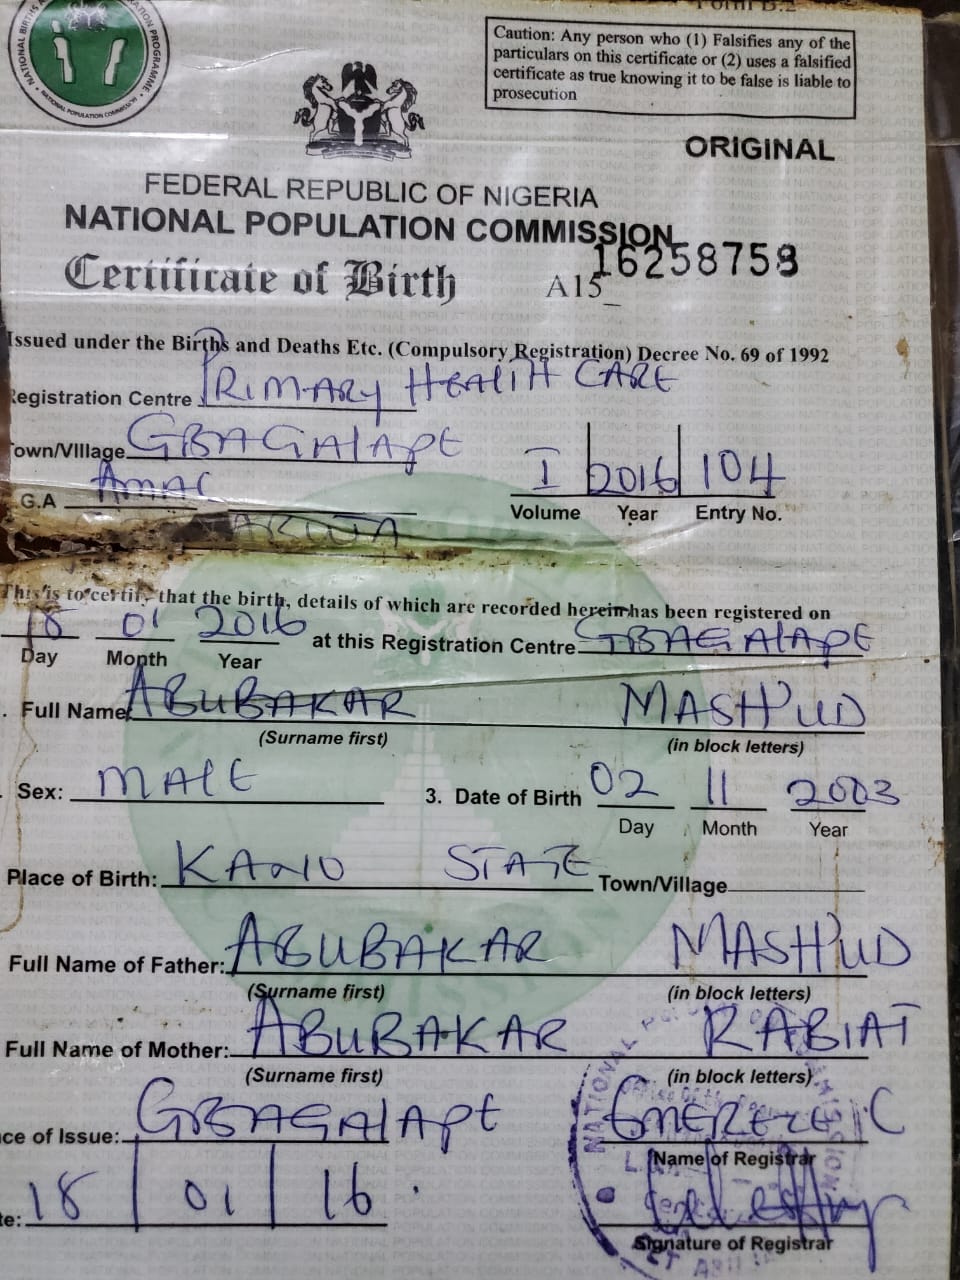 Form B.2
NATIONAL POPULATION COMMISSION
Caution: Any person who (1) Falsifies any of the
particulars on this certificate or (2) uses a falsified
certificate as true knowing it to be false is liable to
prosecution
ORIGINAL
FEDERAL REPUBLIC OF NIGERIA
NATIONAL POPULATION COMMISSION
Certificate of Birth
A15 16258758
Issued under the Births and Deaths Etc. (Compulsory Registration) Decree No. 69 of 1992
Registration Centre PRIMARY HEALTH CARE
Town/VIllage GBAGALAPE
I 2016 104
L.G.A AMAC
Volume Year Entry No.
This is to certify that the birth, details of which are recorded herein has been registered on
18 01 2016 at this Registration Centre GBAGALAPE
Day Month Year
. Full Name ABUBAKAR MASH'UD
(Surname first) (in block letters)
. Sex: MALE 3. Date of Birth 02 11 2003
Day Month Year
Place of Birth: KANO STATE Town/Village
Full Name of Father: ABUBAKAR MASH'UD
(Surname first) (in block letters)
Full Name of Mother: ABUBAKAR RABIAT
(Surname first) (in block letters)
ce of Issue: GBAGALAPE
Name of Registrar
te: 18 01 16
Signature of Registrar